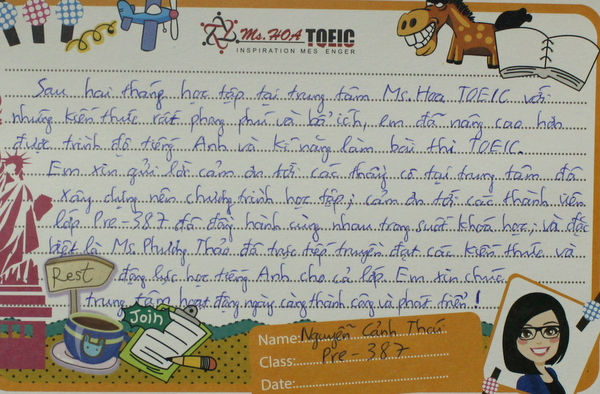 Ms. HOA TOEIC
INSPIRATION MESSENGER
Sau hai tháng học tập tại trung tâm Ms. Hoa TOEIC với
những kiến thức rất phong phú và bổ ích, em đã nâng cao hơn
được trình độ tiếng Anh và kĩ năng làm bài thi TOEIC.
Em xin gửi lời cảm ơn tới các thầy cô tại trung tâm đã
xây dựng nên chương trình học tập; cảm ơn tới các thành viên
lớp Pre-387 đã đồng hành cùng nhau trong suốt khoá học; và đặc
biệt là Ms. Phương Thảo đã trực tiếp truyền đạt các kiến thức và
động lực học tiếng Anh cho cả lớp. Em xin chúc
trung tâm hoạt động ngày càng thành công và phát triển!
Rest
Join
Name: Nguyễn Cảnh Thái
Class: Pre-387
Date: